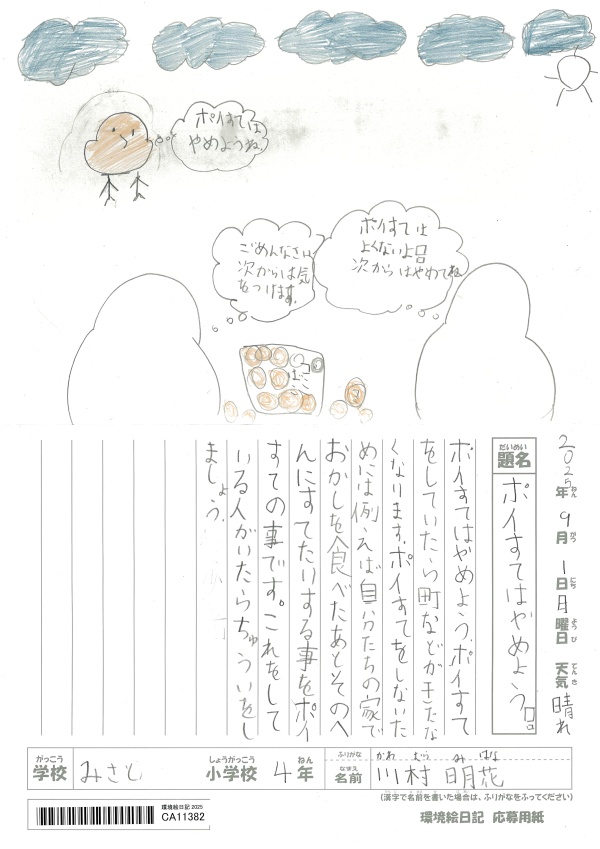 ポイすては
やめようね
ごめんなさい
次からは気
をつけます。
ポイすては
よくないよ
次からはやめてね
ごみばこ
2025年9月1日月曜日 天気 晴れ
ねん がつ にち ようび てんき
だいめい
題名 ポイすてはやめよう。
ポイすてはやめよう。ポイすて
をしていたら町などがきたな
くなります。ポイすてをしないた
めには例えば自分たちの家で
おかしを食べたあとそのへ
んにすてたりする事をポイ
すての事です。これをして
いる人がいたらちゅういをし
ましょう。
がっこう しょうがっこう ねん ふりがな かわ むら み はな
学校 みさと 小学校 4年 なまえ 名前 川村明花
(漢字で名前を書いた場合は、ふりがなをふってください)
環境絵日記 2025
CA11382
環境絵日記 応募用紙